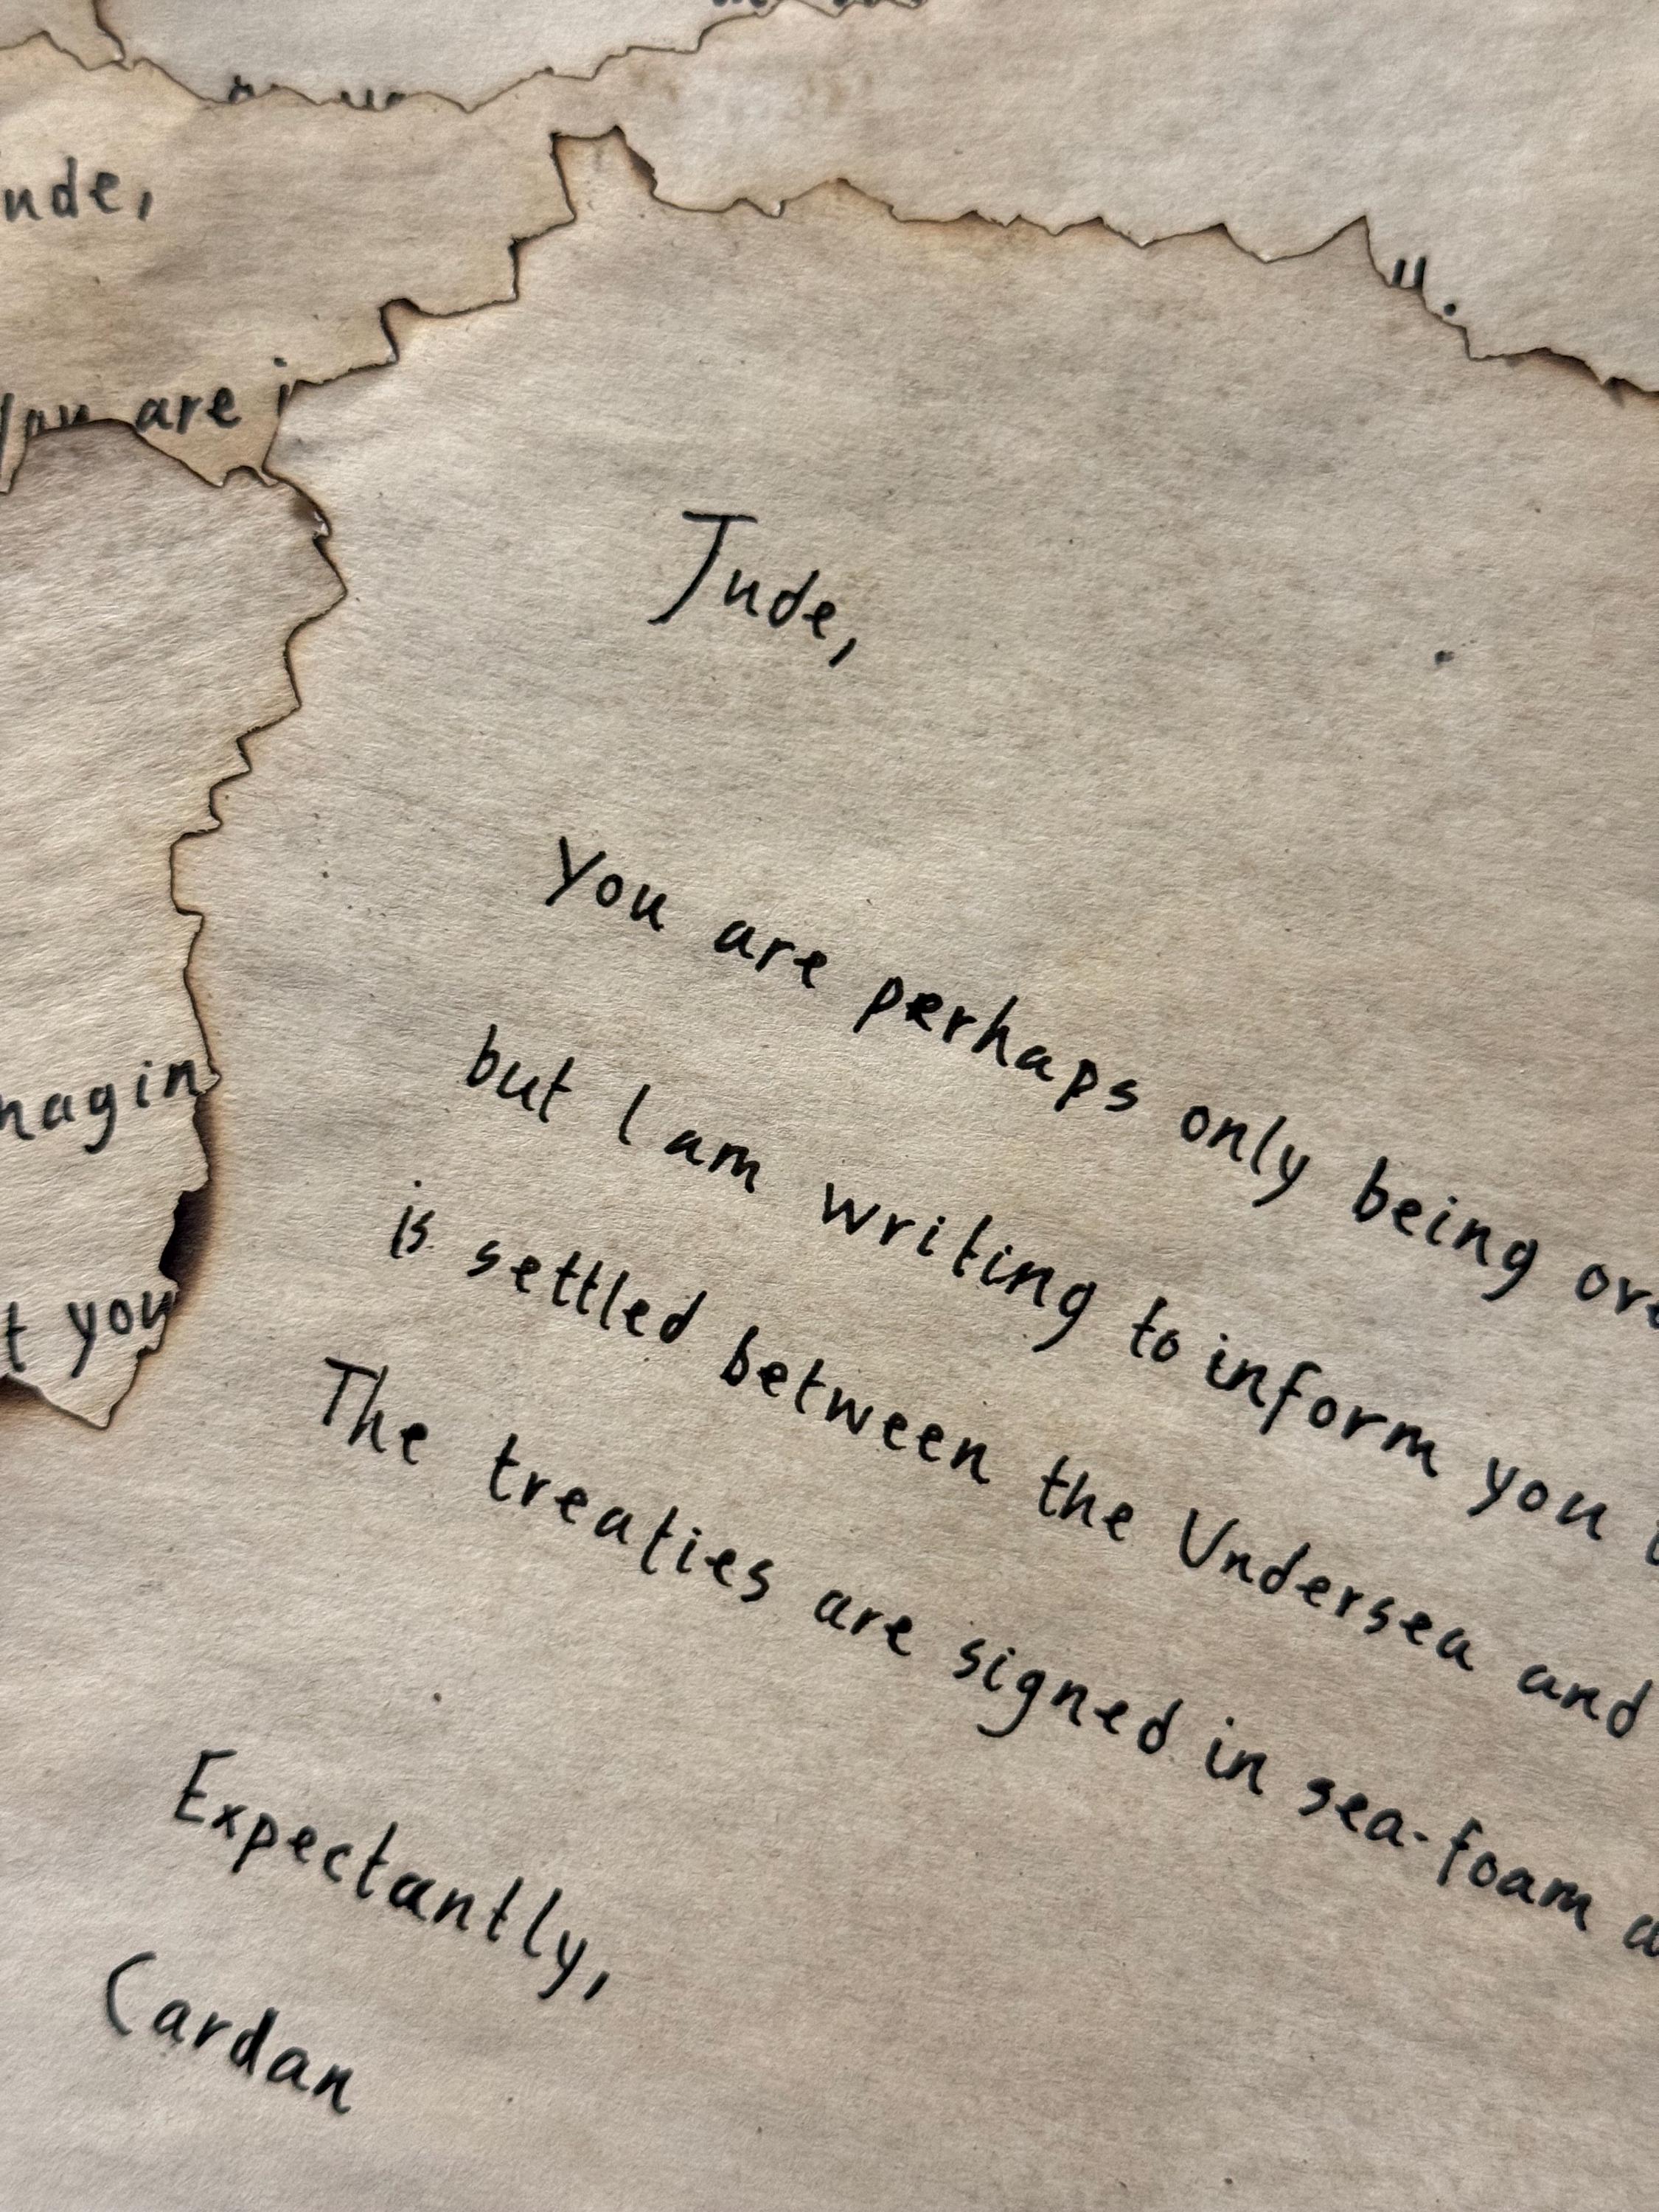 are
Jude,
You are perhaps only being
but I am writing to inform you
is settled between the Undersea and
The treaties are signed in sea-foam
Expectantly,
Cardan
you